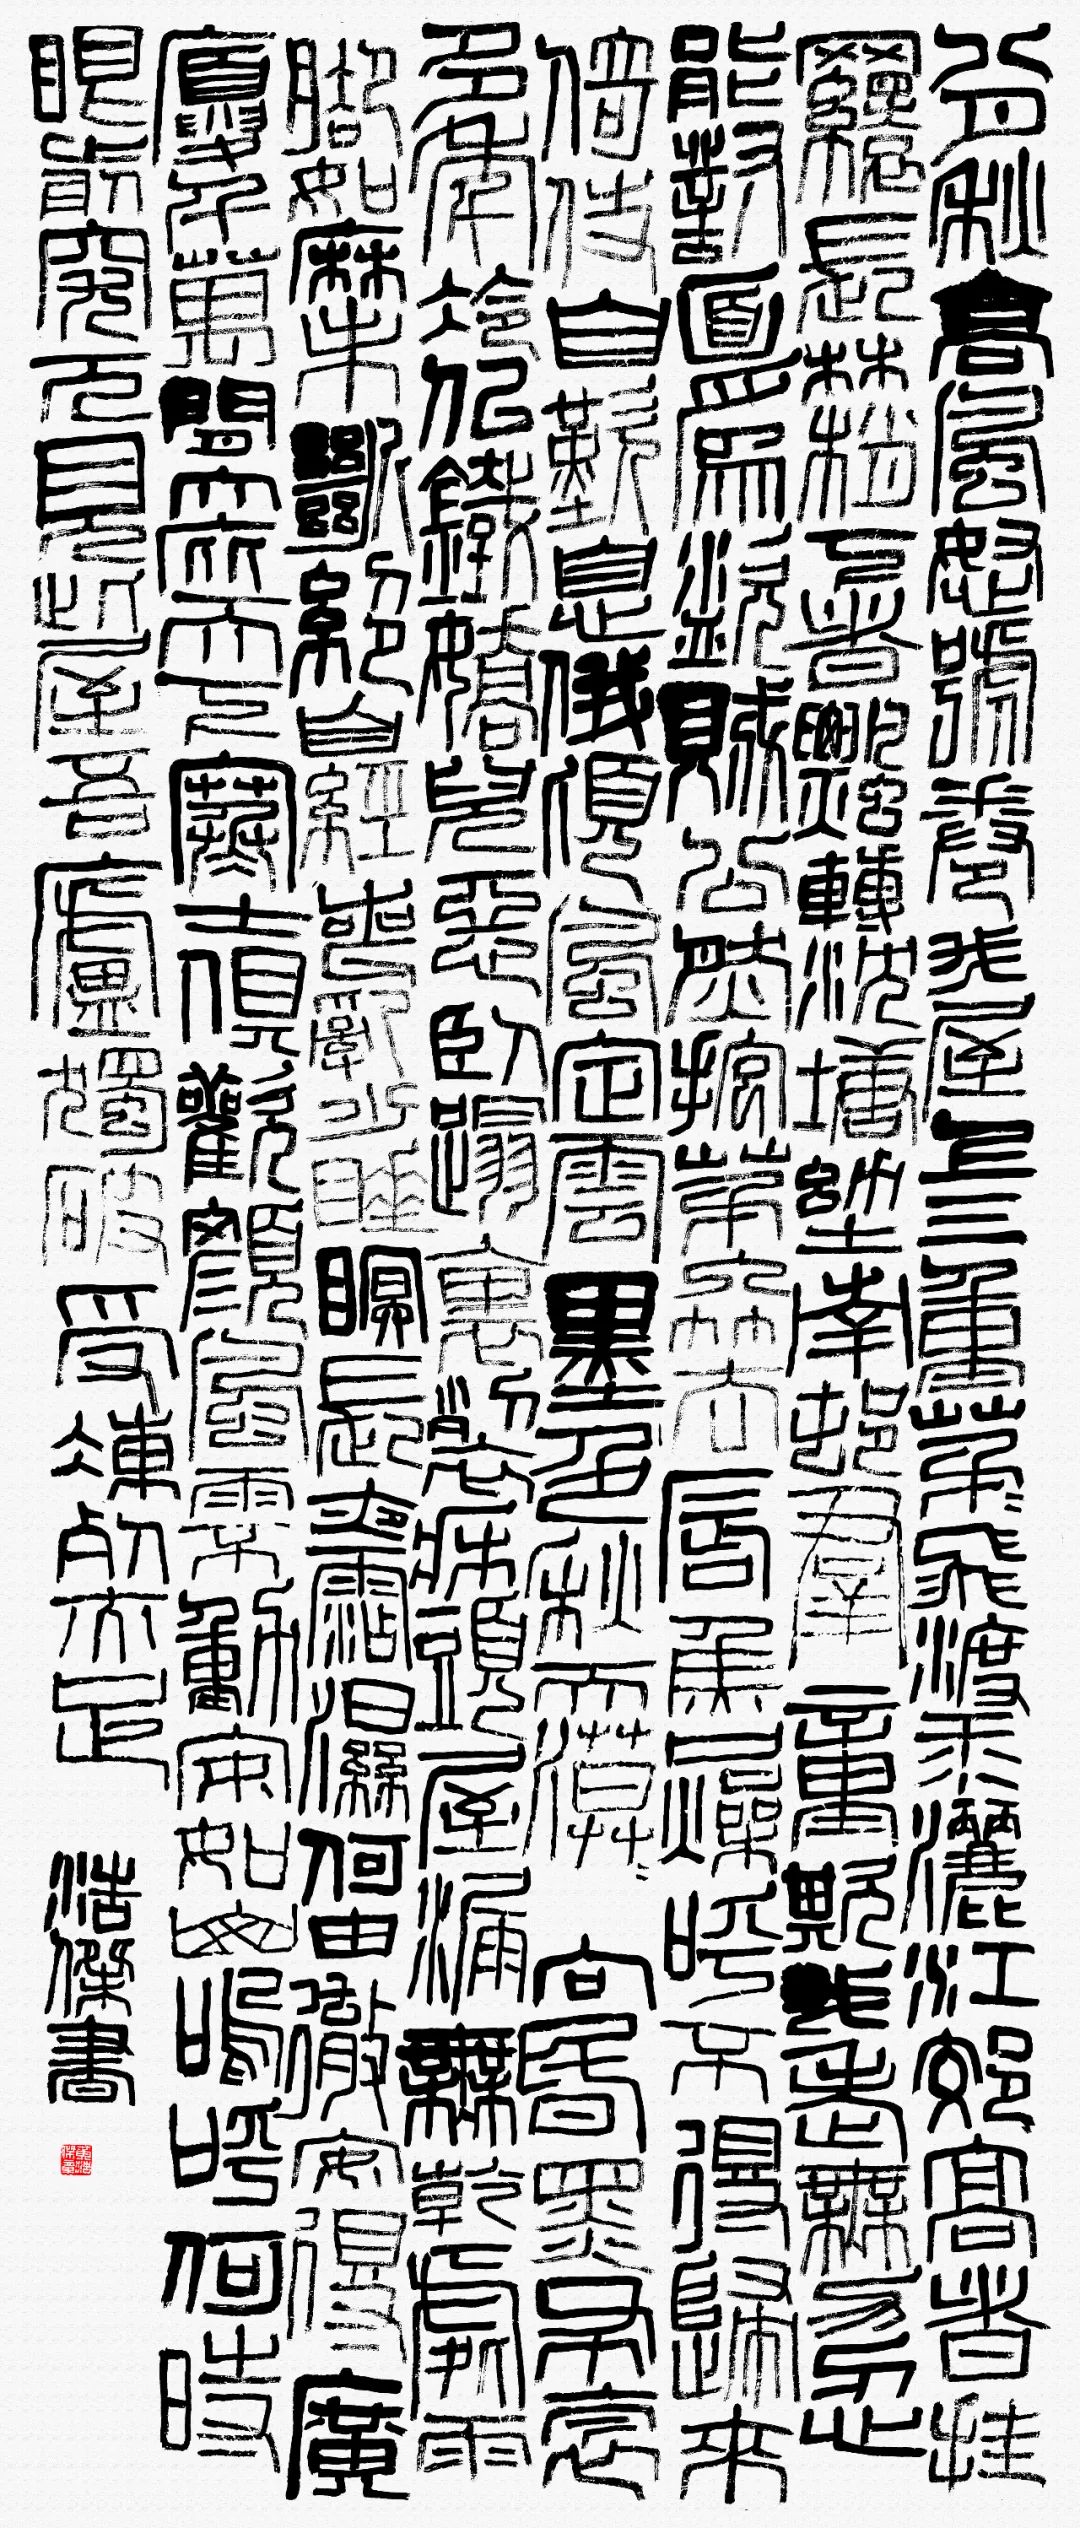 八月秋高風怒號卷我屋上三重茅〻飛渡灑江郊高者挂
罥長林梢下者飄轉沈塘坳南村羣童欺我老無力忍
能對面爲盜賊公然抱茅入竹去脣焦口燥呼不得歸來
倚杖自歎息俄頃風定雲墨色秋天漠〻向昏黑布衾
多年冷似鐵嬌兒惡臥踏裏裂牀頭屋漏無乾處雨
腳如麻未斷絕自經喪亂少睡眠長夜霑濕何由徹安得廣
廈千萬間大庇天下寒士俱歡顏風雨不動安如山嗚呼何時
眼前突兀見此屋吾廬獨破受凍死亦足
浩傑書